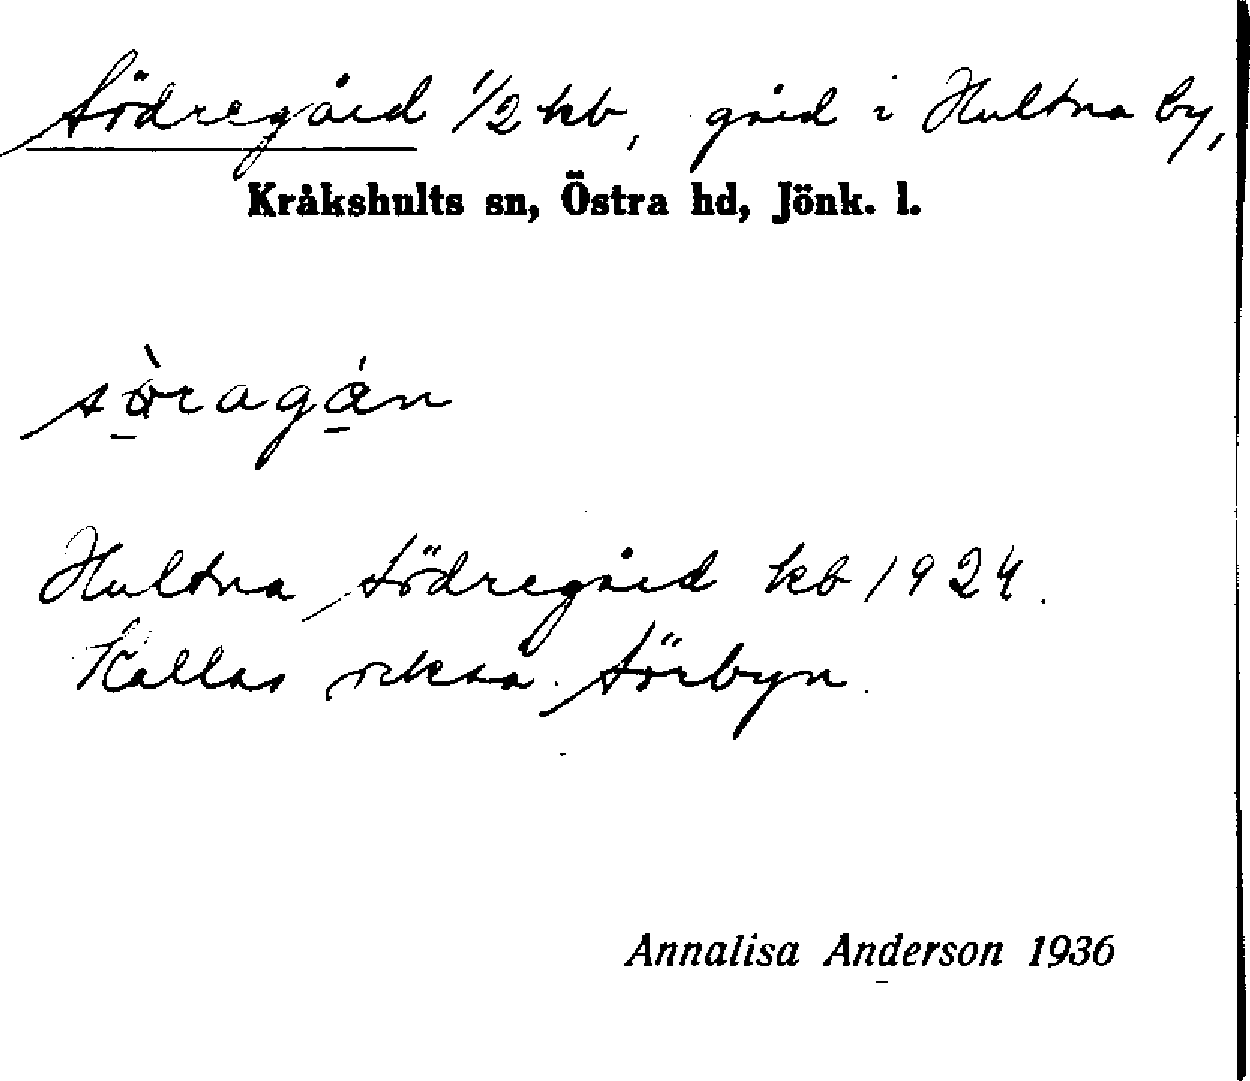 Södregård 1/2 kb, gård i Hultna by,
Kråkshults sn, Östra hd, Jönk. l.
Hultna Södregård kb 1924.
Kallas också Sörbyn.
Annalisa Anderson 1936